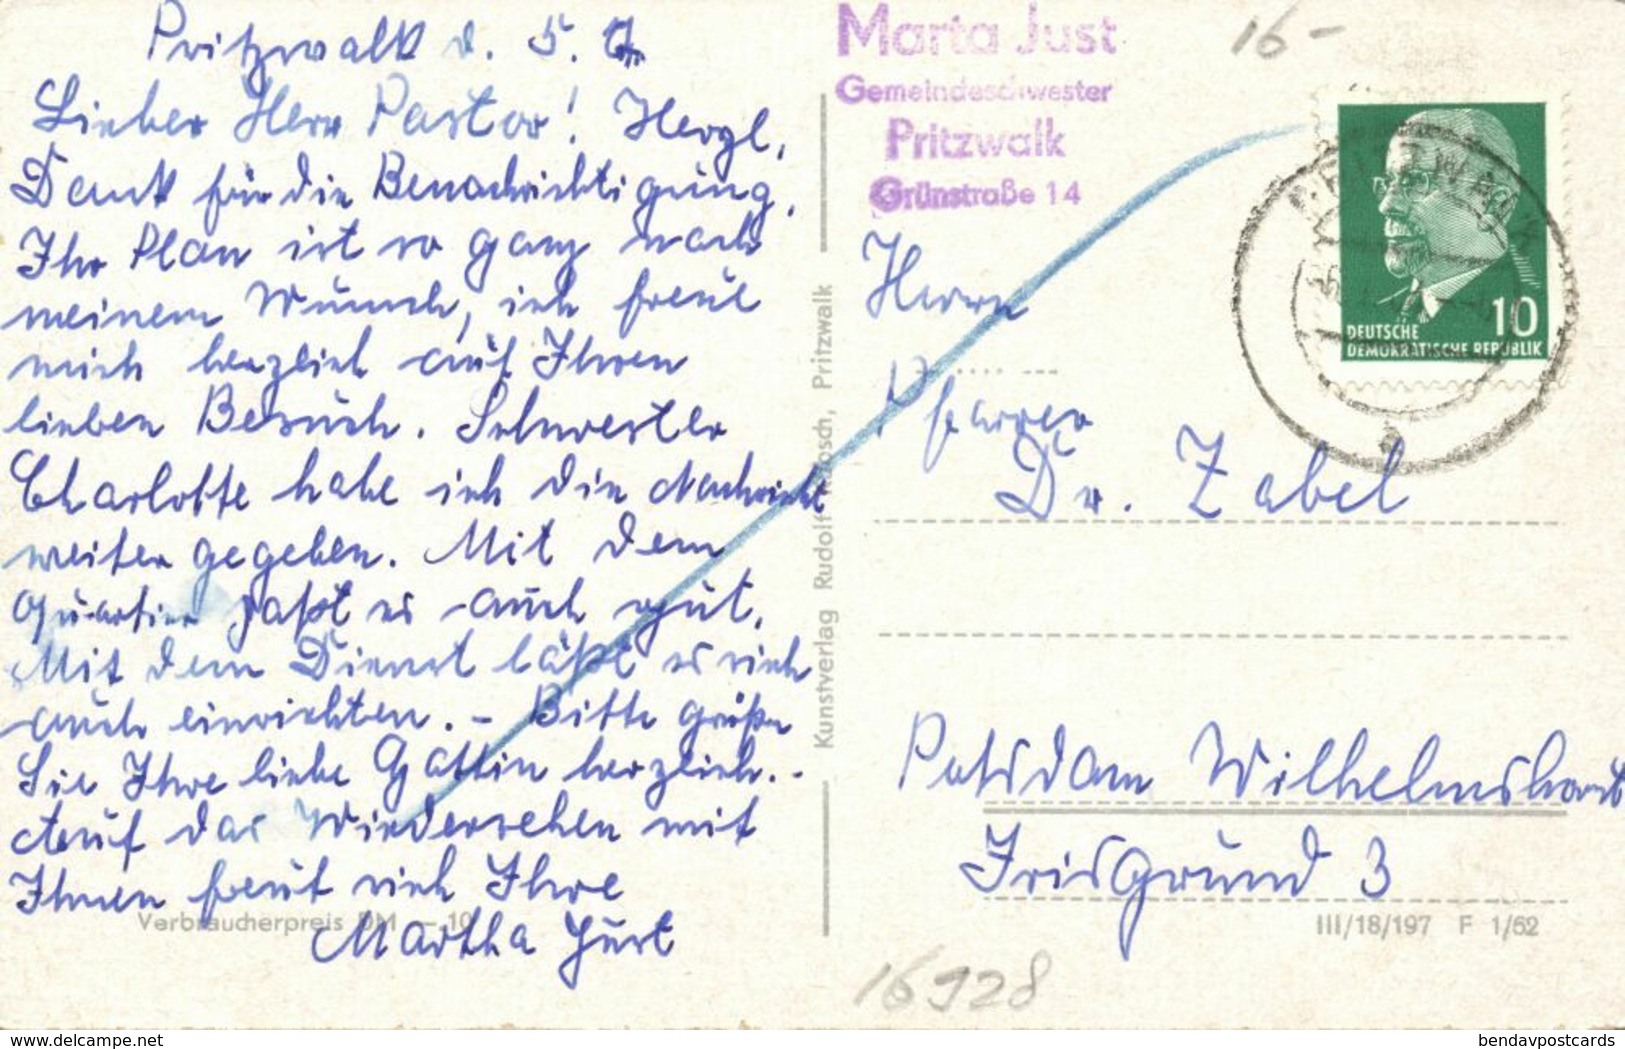 Pritzwalk d. 5. 7.
Lieber Herr Pastor! Herzl.
Dank für die Benachrichtigung,
Ihr Plan ist so ganz nach
meinem Wunsch, ich freue
mich herzlich auf Ihren
lieben Besuch. Schwester
Charlotte habe ich die Nachricht
weiter gegeben. Mit dem
Quartier paßt es auch gut.
Mit dem Dienst läßt es sich
auch einrichten. – Bitte grüßen
Sie Ihre liebe Gattin herzlich. -
Auf das Wiedersehen mit
Ihnen freut sich Ihre
Martha Just
Verbraucherpreis DM —.10
Kunstverlag Rudolf Pritzwalk
Marta Just
Gemeindeschwester
Pritzwalk
Grünstraße 14
16-
DEUTSCHE 10
DEMOKRATISCHE REPUBLIK
PRITZWALK
Herrn
Pfarrer
Dr. Zabel
Potsdam Wilhelmshorst
Irisgrund 3
III/18/197 F 1/62
16928
www.delcampe.net
bendavpostcards